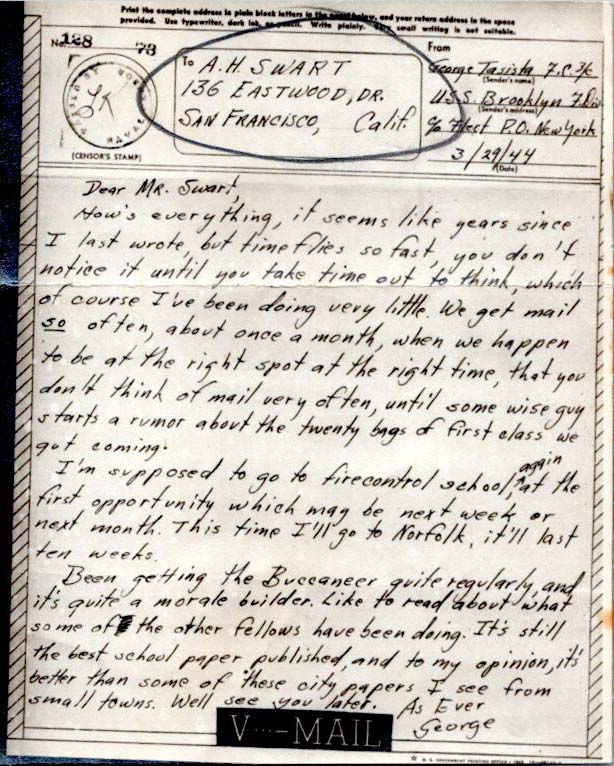 Print the complete address in plain block letters in the panel below, and your return address in the space
provided. Use typewriter, dark ink, or pencil. Write plainly. Very small writing is not suitable.
No. 128 73
PASSED BY NAVAL
(CENSOR'S STAMP)
To A.H. SWART
136 EASTWOOD, DR.
SAN FRANCISCO, Calif.
From
George Tasista F.C. 3/c
(Sender's name)
U.S.S. Brooklyn F. Div
(Sender's address)
c/o Fleet P.O. New York
3/29/44
(Date)
Dear Mr. Swart,
How's everything, it seems like years since
I last wrote, but time flies so fast, you don't
notice it until you take time out to think, which
of course I've been doing very little. We get mail
so often, about once a month, when we happen
to be at the right spot at the right time, that you
don't think of mail very often, until some wise guy
starts a rumor about the twenty bags of first class we
got coming.
I'm supposed to go to firecontrol school, again at the
first opportunity which may be next week or
next month. This time I'll go to Norfolk, it'll last
ten weeks.
Been getting the Buccaneer quite regularly, and
it's quite a morale builder. Like to read about what
some of the other fellows have been doing. It's still
the best school paper published, and to my opinion, it's
better than some of these city papers I see from
small towns. Well see you later. As Ever
George
V···-MAIL
U. S. GOVERNMENT PRINTING OFFICE